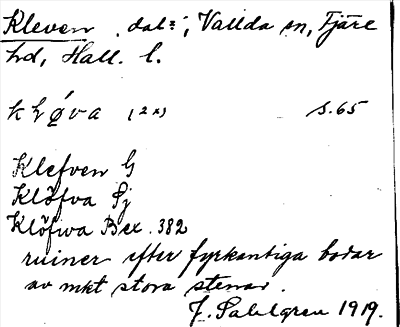 Kleven, dal=, Vallda sn, Fjäre
hd, Hall. l.
(2x) s. 65
Klefven G
Klöfva Sj
Klöfwa Bex. 382
ruiner efter fyrkantiga bodar
av mkt stora stenar.
J. Sahlgren 1919.